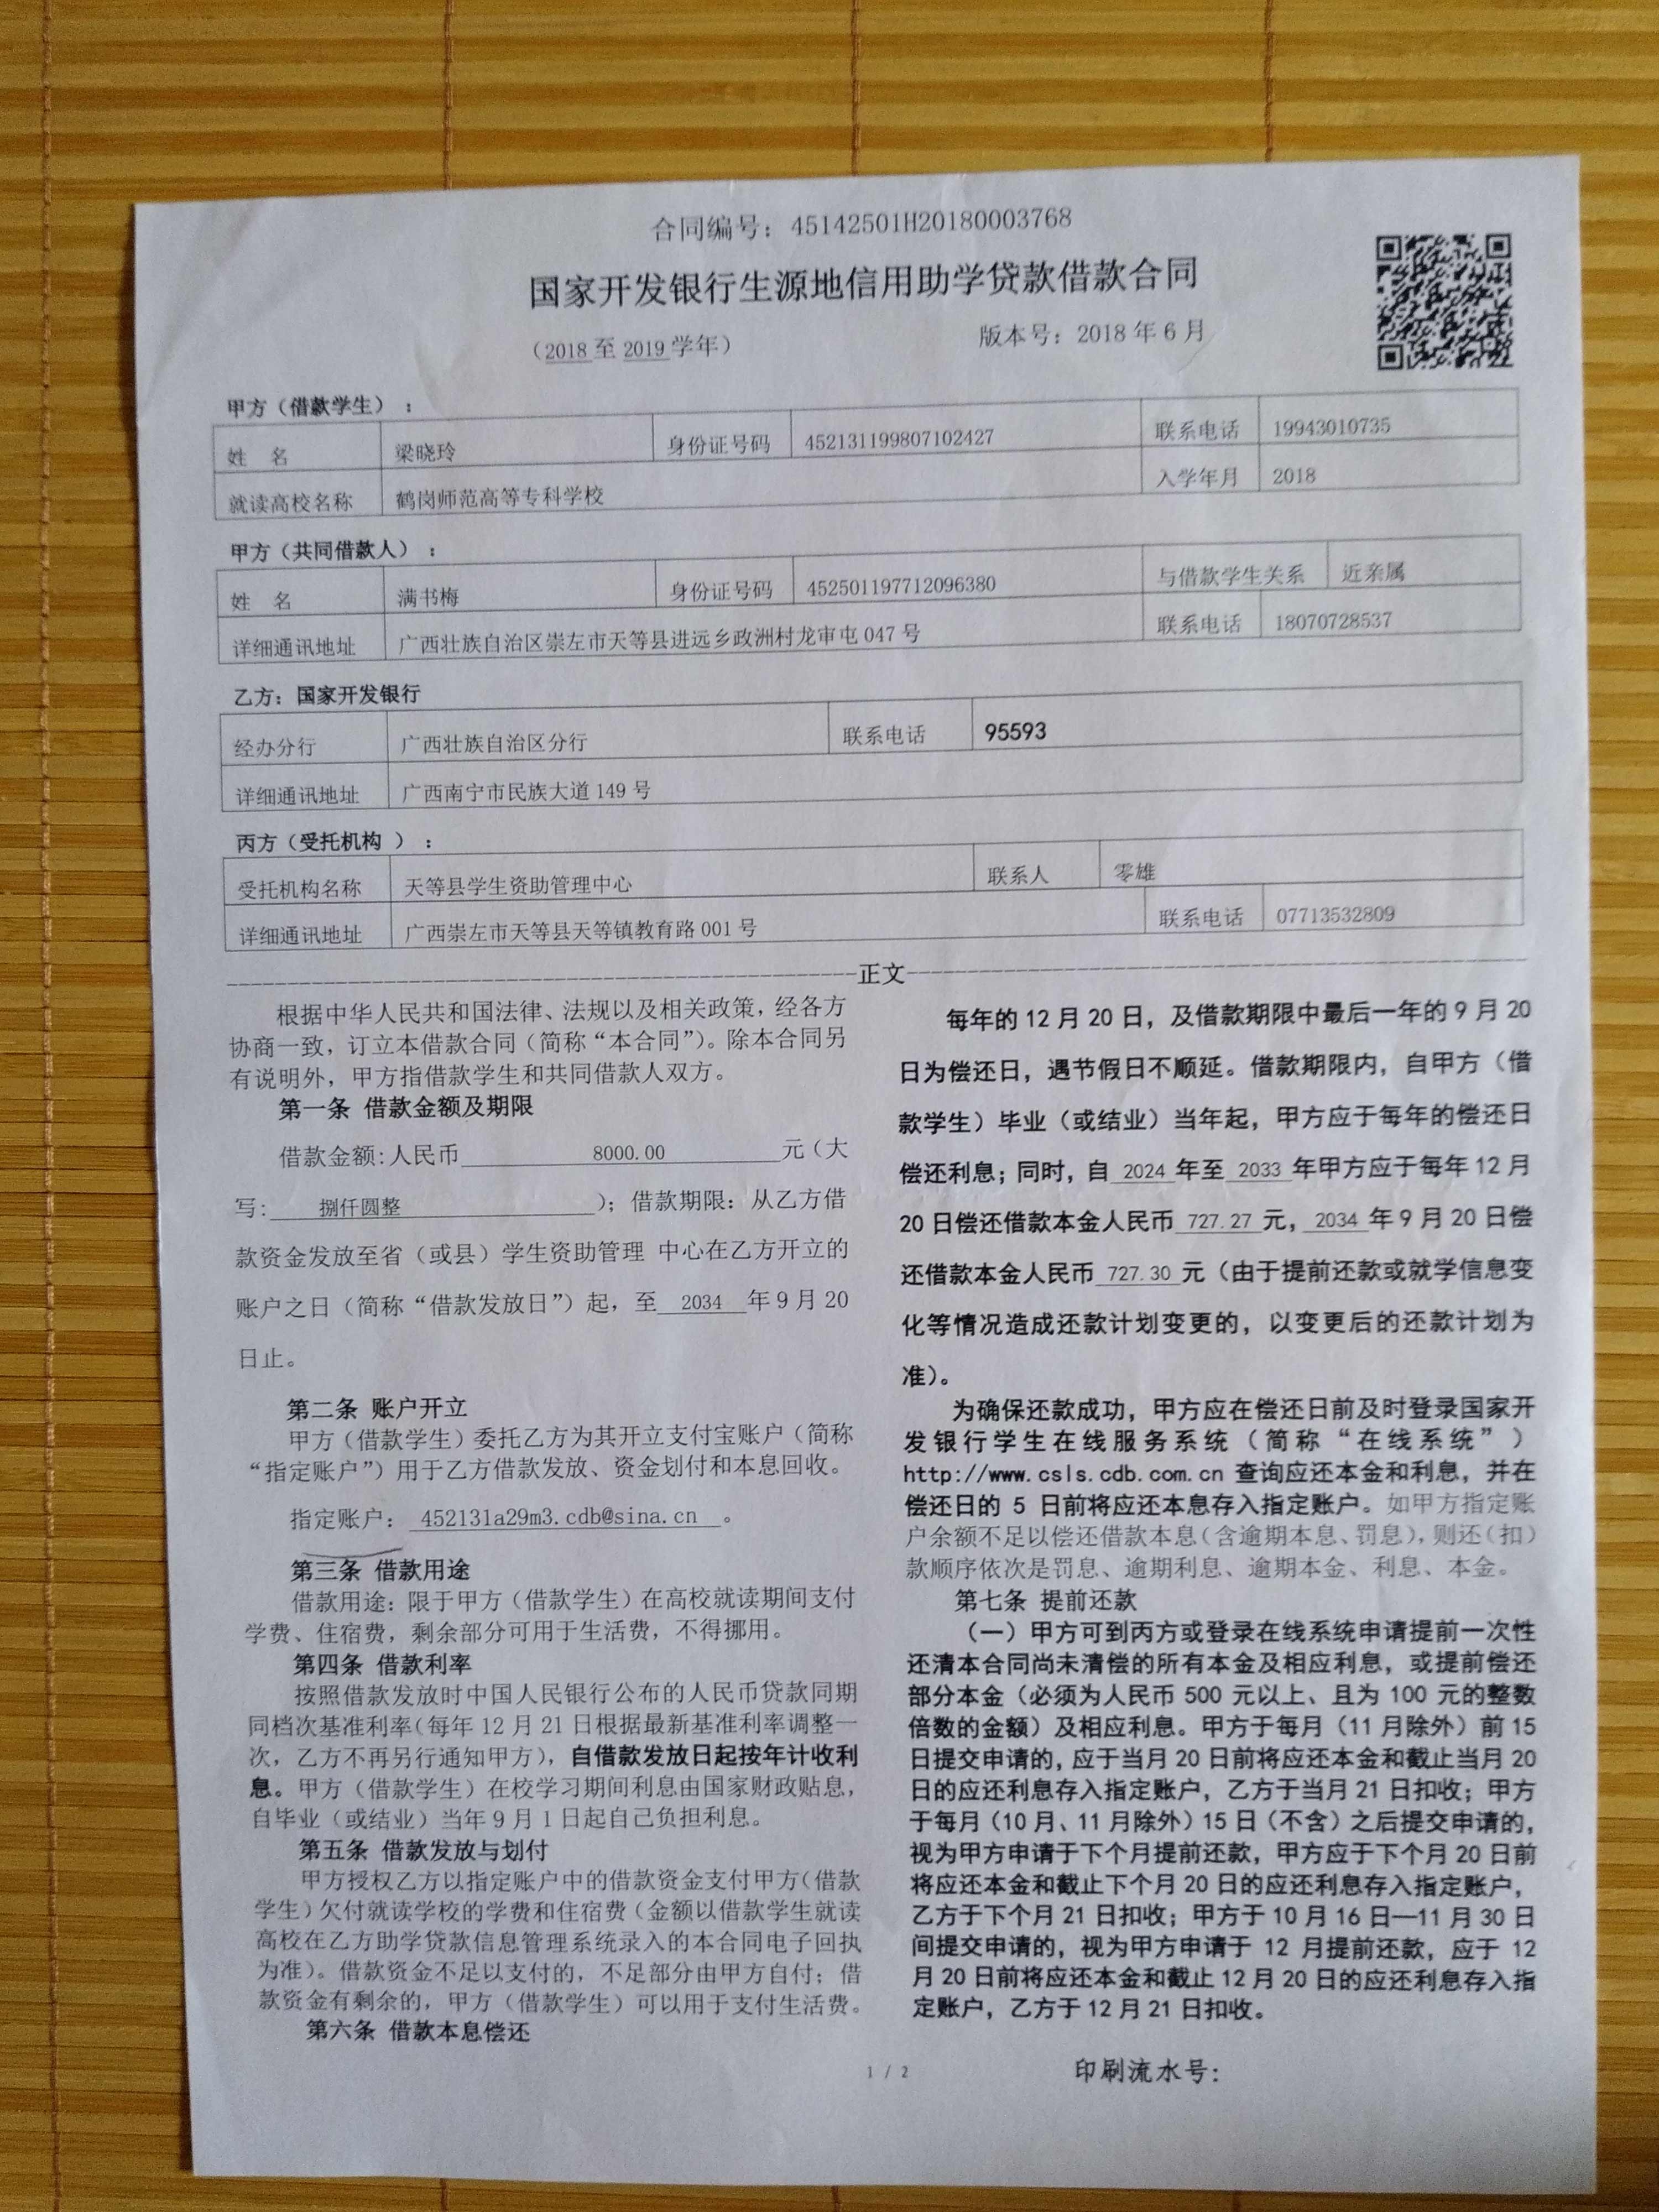 合同编号：45142501H20180003768
国家开发银行生源地信用助学贷款借款合同
（2018至2019学年） 版本号：2018年6月
甲方（借款学生）：
姓 名 梁晓玲 身份证号码 452131199807102427 联系电话 19943010735
就读高校名称 鹤岗师范高等专科学校 入学年月 2018
甲方（共同借款人）：
姓 名 满书梅 身份证号码 452501197712096380 与借款学生关系 近亲属
详细通讯地址 广西壮族自治区崇左市天等县进远乡政洲村龙审屯047号 联系电话 18070728537
乙方：国家开发银行
经办分行 广西壮族自治区分行 联系电话 95593
详细通讯地址 广西南宁市民族大道149号
丙方（受托机构 ）：
受托机构名称 天等县学生资助管理中心 联系人 零雄
详细通讯地址 广西崇左市天等县天等镇教育路001号 联系电话 07713532809
正文
根据中华人民共和国法律、法规以及相关政策，经各方
协商一致，订立本借款合同（简称“本合同”）。除本合同另
有说明外，甲方指借款学生和共同借款人双方。
第一条 借款金额及期限
借款金额:人民币 8000.00 元（大
写: 捌仟圆整 ）；借款期限：从乙方借
款资金发放至省（或县）学生资助管理 中心在乙方开立的
账户之日（简称“借款发放日”）起，至 2034 年9月20
日止。
第二条 账户开立
甲方（借款学生）委托乙方为其开立支付宝账户（简称
“指定账户”）用于乙方借款发放、资金划付和本息回收。
指定账户： 452131a29m3.cdb@sina.cn 。
第三条 借款用途
借款用途：限于甲方（借款学生）在高校就读期间支付
学费、住宿费，剩余部分可用于生活费，不得挪用。
第四条 借款利率
按照借款发放时中国人民银行公布的人民币贷款同期
同档次基准利率（每年12月21日根据最新基准利率调整一
次，乙方不再另行通知甲方），自借款发放日起按年计收利
息。甲方（借款学生）在校学习期间利息由国家财政贴息，
自毕业（或结业）当年9月1日起自己负担利息。
第五条 借款发放与划付
甲方授权乙方以指定账户中的借款资金支付甲方（借款
学生）欠付就读学校的学费和住宿费（金额以借款学生就读
高校在乙方助学贷款信息管理系统录入的本合同电子回执
为准）。借款资金不足以支付的，不足部分由甲方自付；借
款资金有剩余的，甲方（借款学生）可以用于支付生活费。
第六条 借款本息偿还
每年的12月20日，及借款期限中最后一年的9月20
日为偿还日，遇节假日不顺延。借款期限内，自甲方（借
款学生）毕业（或结业）当年起，甲方应于每年的偿还日
偿还利息；同时，自 2024 年至 2033 年甲方应于每年12月
20日偿还借款本金人民币 727.27 元， 2034 年9月20日偿
还借款本金人民币 727.30 元（由于提前还款或就学信息变
化等情况造成还款计划变更的，以变更后的还款计划为
准）。
为确保还款成功，甲方应在偿还日前及时登录国家开
发银行学生在线服务系统（简称“在线系统”）
http://www.csls.cdb.com.cn 查询应还本金和利息，并在
偿还日的 5 日前将应还本息存入指定账户。如甲方指定账
户余额不足以偿还借款本息（含逾期本息、罚息），则还（扣）
款顺序依次是罚息、逾期利息、逾期本金、利息、本金。
第七条 提前还款
（一）甲方可到丙方或登录在线系统申请提前一次性
还清本合同尚未清偿的所有本金及相应利息，或提前偿还
部分本金（必须为人民币500元以上、且为100元的整数
倍数的金额）及相应利息。甲方于每月（11月除外）前15
日提交申请的，应于当月20日前将应还本金和截止当月20
日的应还利息存入指定账户，乙方于当月21日扣收；甲方
于每月（10月、11月除外）15日（不含）之后提交申请的，
视为甲方申请于下个月提前还款，甲方应于下个月20日前
将应还本金和截止下个月20日的应还利息存入指定账户，
乙方于下个月21日扣收；甲方于10月16日—11月30日
间提交申请的，视为甲方申请于 12 月提前还款，应于 12
月20日前将应还本金和截止12月20日的应还利息存入指
定账户，乙方于12月21日扣收。
1 / 2
印刷流水号：